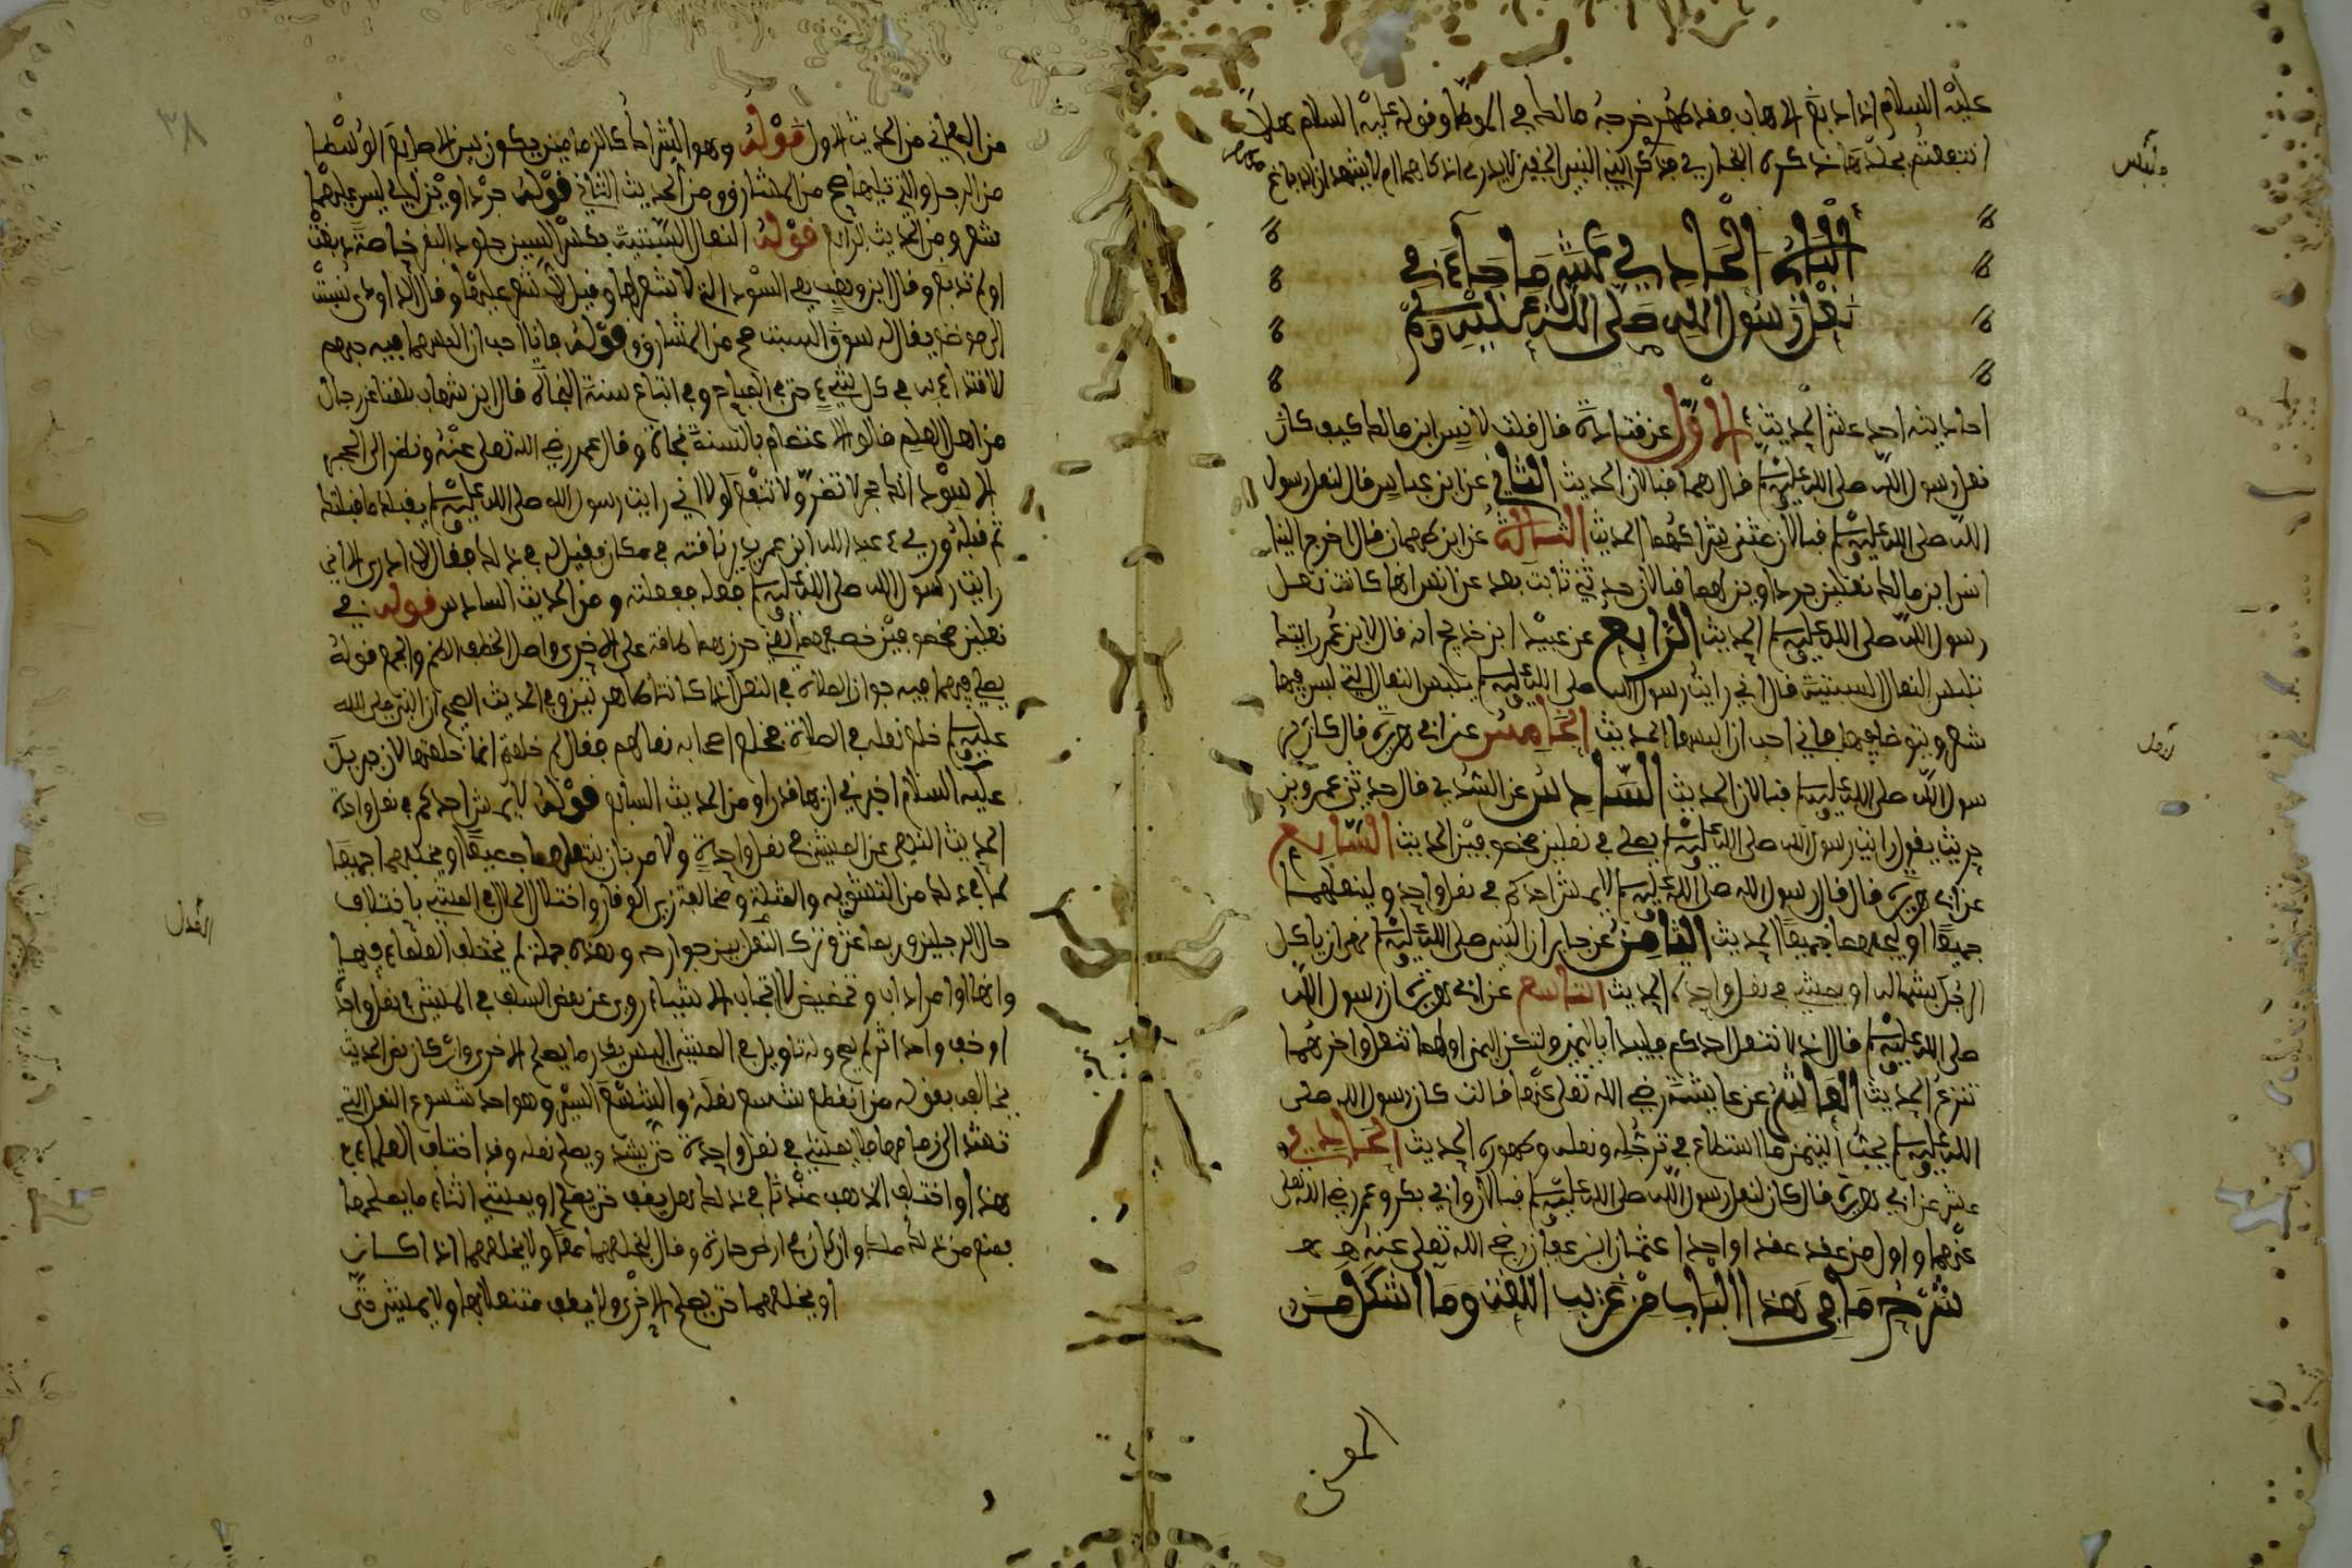 عليه السلام اذا دبغ الاهاب فقد طهر خرجه مالك في الموطا وقوله عليه السلام هلا
انتفعتم بجلدها ذكره البخاري
الباب الحادي عشر ما جاء في
نعل رسول الله صلى الله عليه وسلم
احاديثه احد عشر الحديث الاول عن قتادة قال قلت لانس ابن مالك كيف كان
نعل رسول الله صلى الله عليه وسلم قال لهما قبالان الحديث الثاني عن ابن عباس قال لنعل رسول
الله صلى الله عليه وسلم قبالان مثنى شراكهما الحديث الثالث عن ابن طهمان قال اخرج الينا
انس ابن مالك نعلين جرداوين لهما قبالان حدثني ثابت بعد عن انس انها كانت نعل
رسول الله صلى الله عليه وسلم الحديث الرابع عن عبيد ابن خديج انه قال لابن عمر رايتك
تلبس النعال السبتية قال اني رايت رسول الله صلى الله عليه وسلم يلبس النعال التي ليس فيها
شعر ويتوضا فيها فاني احب ان البسها الحديث الخامس عن ابي هريرة قال كان لر
سول الله صلى الله عليه وسلم قبالان الحديث السادس عن السدي قال حدثني عمرو بن
حريث يقول رايت رسول الله صلى الله عليه وسلم يصلي في نعلين مخصوفتين الحديث السابع
عن ابي هريرة قال قال رسول الله صلى الله عليه وسلم لا يمشين احدكم في نعل واحد ولينعلهما
جميعا او ليخلعهما جميعا الحديث الثامن عن جابر ان النبي صلى الله عليه وسلم نهى ان ياكل
الرجل بشماله او يمشي في نعل واحدة الحديث التاسع عن ابي هريرة ان رسول الله
صلى الله عليه وسلم قال اذا انتعل احدكم فليبدا باليمين ولتكن اليمن اولهما تنعل واخرهما
تنزع الحديث العاشر عن عايشة رضي الله تعلى عنها قالت كان رسول الله صلى
الله عليه وسلم يحب التيمن ما استطاع في ترجله ونعله وطهوره الحديث الحادي
عشر عن ابي هريرة قال كان لنعل رسول الله صلى الله عليه وسلم قبالان وابي بكر وعمر رضي الله تعلى
عنهما واول من عقد عقدا واحدا عثمان ابن عفان رضي الله تعلى عنه
شرح ما في هذا الباب من غريب اللغة وما اشكل من
المعنى
من المعاني من الحديث الاول قوله وهو الشراك كالزمامين يكون بين الاصابع الوسطى
من الرجل والتي تليها صح من المشارق ومن الحديث الثاني قوله جرداوين اي ليس عليهما
شعر ومن الحديث الرابع قوله النعال السبتية بكسر السين جلود البقر خاصة دبغت
او لم تدبغ وقال ابن وهب هي السود التي لا شعر لها وقيل التي لا شعر عليها وقال الداودي نسبت
الى موضع يقال له سوق السبت صح من المشارق وقوله فانا احب ان البسهما فيه فيهم
الاقتداء به في كل شيء حتى في المباح وفي اتباع سنته النجاة قال ابن شهاب بلغنا عن رجال
من اهل العلم قالوا الاعتصام بالسنة نجاة وقال عمر رضي الله تعلى عنه ونظر الى الحجر
الاسود انك حجر لا تضر ولا تنفع لولا اني رايت رسول الله صلى الله عليه وسلم يقبلك ما قبلتك
ثم قبله ورءي عبد الله ابن عمر يدير ناقته في مكان فقيل له في ذلك فقال لا ادري الا اني
رايت رسول الله صلى الله عليه وسلم فعله ففعلته ومن الحديث السادس قوله في
نعلين مخصوفتين خصفهما يعني خرزهما طاقة على الاخرى واصل الخصف الضم والجمع قوله
يصلي فيهما فيه جواز الصلاة في النعل اذا كانتا طاهرتين وفي الحديث الصحيح ان النبي صلى الله
عليه وسلم خلع نعله في الصلاة فخلع اصحابه نعالهم فقال لم خلعتم انما خلعتها لان جبريل
عليه السلام اخبرني ان بها قذرا ومن الحديث السابع قوله لا يمشين احدكم في نعل واحدة
الحديث النهي عن المشي في نعل واحدة والامر بان ينتعلهما جميعا او يخلعهما جميعا
لما في ذلك من التشويه والمثلة ومخالفة زي الوقار واختلال الحال في المشي باختلاف
حال الرجلين وربما عثر وترك العدل بين جوارحه وهذه جملة لم يختلف العلماء فيها
وانها اوامر اداب وتحضيض لا ايجاب الا شيئا روي عن بعض السلف في المشي في نعل واحد
او خف واحد اثر لم يصح وله تاويل في المشي اليسير بقدر ما يصلح الاخرى وان كان نص الحديث
يخالفه بقوله من انقطع شسع نعله والشسع السير وهو احد شسوع النعل التي
تشد الى زمامها فلا يمشي في نعل واحدة حتى يشد ويصلح نعله وقد اختلف العلماء في
هذا واختلف المذهب عندنا في ذلك هل يقف حتى يصلح او يمشي اثناء ما يصلحها
فمنع من ذلك مالك وان كان في ارض حارة وقال ليخلعهما معا ولا يخلعهما اذا كان
او يخلعهما حتى يصلح الاخرى ولا يقف منتعلا بها ولا يمشي حتى